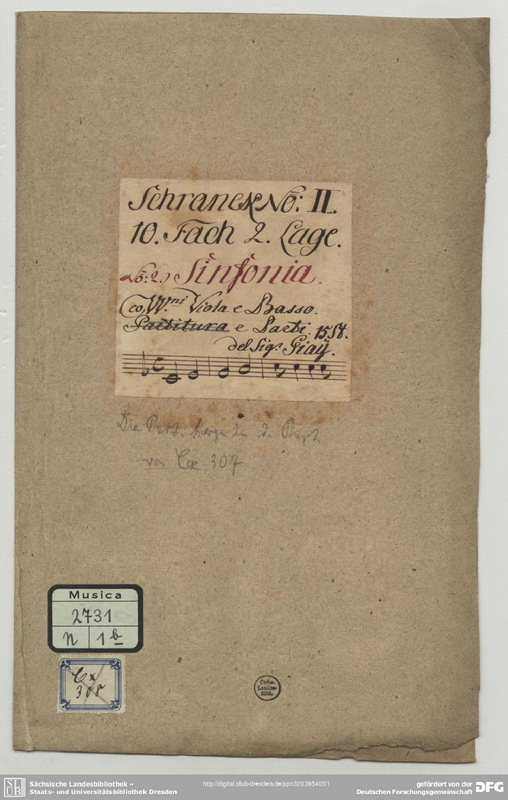 Schranck No: II.
10. Fach 2. Lage.
No: 2.) Sinfonia.
co VV.ni Viola e Basso.
Partitura e Parti. 15 St.
del Sigr. Graŭ.
Die Part. in d. Part.
von Cx 307
Musica
2731
n 1b
Cx
308
Sächs.
Landes-
Bibl.
SLUB
Sächsische Landesbibliothek –
Staats- und Universitätsbibliothek Dresden
http://digital.slub-dresden.de/ppn320395405/1
gefördert von der
Deutschen Forschungsgemeinschaft
DFG